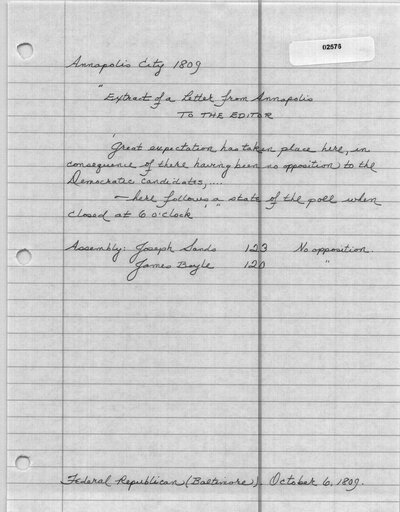 02576
Annapolis City 1809
"Extract of a Letter from Annapolis
TO THE EDITOR
'Great expectation has taken place here, in
consequence of there having been no opposition to the
Democratic candidates,....
—here follows a state of the poll when
closed at 6 o'clock'"
Assembly: Joseph Sands 123 No opposition.
James Boyle 120 "
Federal Republican (Baltimore). October 6, 1809.